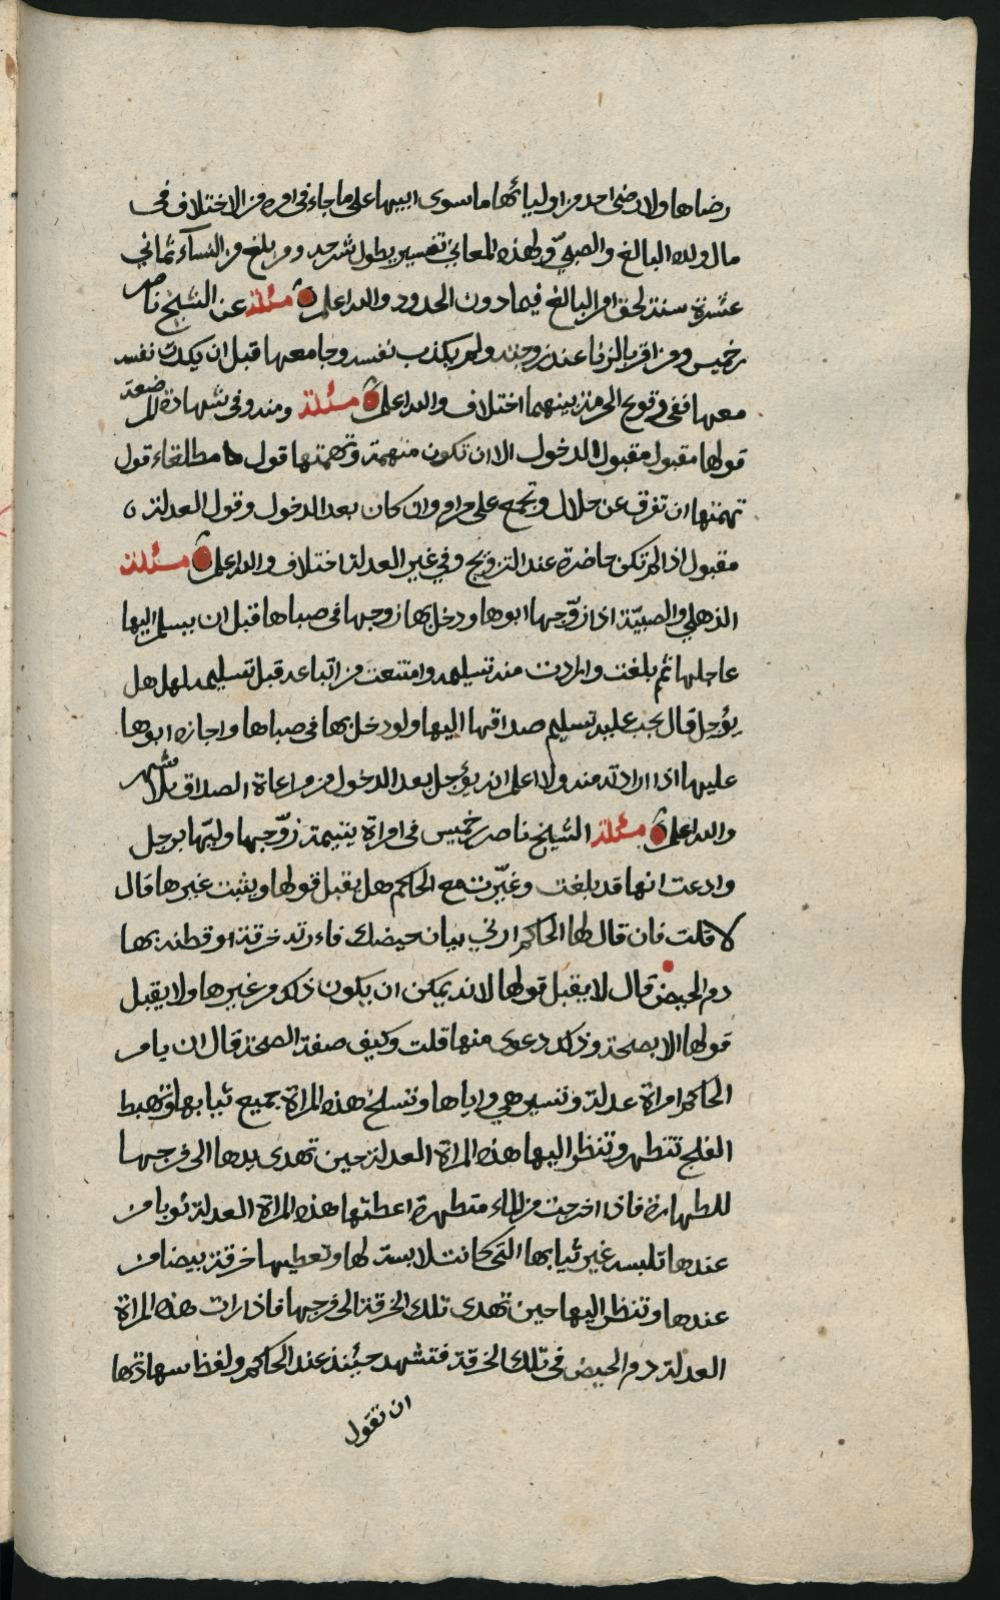 رضاها ولا رضى احد من اوليائها ما سوى ابيها على ما جاء في امره من الاختلاف في
مال ولده البالغ والصبيّ ولهذه المعاني تفسير يطول شرحه ومن بلغ من النسآء ثماني
عشرة سنة لحق امر البالغ فيما دون الحدود والله اعلم مسئلة عن الشيخ ناصر
بن خميس ومن اقر بالزنا عند زوجته ولم يكذب نفسه وجامعها قبل ان يكذب نفسه
معها ففي وقوع الحرمة بينهما اختلاف والله اعلم مسئلة ومنه وفي شهادة المرضعة
قولها مقبول مقبول الدخول الا ان تكون متهمة وتهمتها قول مطلقاء قول
تهمتها ان تفرق عن حلال وتجمع على حرام وان كان بعد الدخول وقول العدلة
مقبول اذا لم تكن حاضرة عند التزويج وفي غير العدلة اختلاف والله اعلم مسئلة
الذهلي والصبيّة اذا زوّجها ابوها ودخل بها زوجها في صباها قبل ان يسلم اليها
عاجلها ثم بلغت وارادت منه تسليمه وامتنعت من اتباعه قبل تسليمه لها هل
يؤجل قال يجب عليه تسليم صداقها اليها ولو دخل بها في صباها واجازه ابوها
عليها اذا ارادته منه ولا اعلم انه يؤجل بعد الدخول من مراعاة الصداق بلا شهر
والله اعلم مسئلة الشيخ ناصر بن خميس في امراة يتيمة زوّجها وليّها برجل
وادعت انها قد بلغت وغيّرت مع الحاكم هل يقبل قولها ويثبت غيرها قال
لا قلت فان قال لها الحاكم ارني بيان حيضك فاءرته خرقة او قطنه بها
دم الحيض قال لا يقبل قولها لانه يمكن ان يكون ذلك من غيرها ولا يقبل
قولها الا بصحة وذلك دعوى منها قلت وكيف صفة الصحة قال ان يامر
الحاكم امراة عدلة وتسير هي واياها وتنسلخ هذه المراة جميع ثيابها وتهبط
الفلج تتطهر وتنظر اليها هذه المراة العدلة حين تهدى يدها الى فرجها
للطهارة فاذا اخرجت من الماء متطهرة اعطتها هذه المراة العدلة ثوبا من
عندها تلبسه غير ثيابها التي كانت لابسة لها وتعطيها خرقة بيضا من
عندها وتنظر اليها حين تهدى تلك الخرقة الى فرجها فاذا رات هذه المراة
العدلة دم الحيض في تلك الخرقة فتشهد حينئذ عند الحاكم ولفظ شهادتها
ان تقول